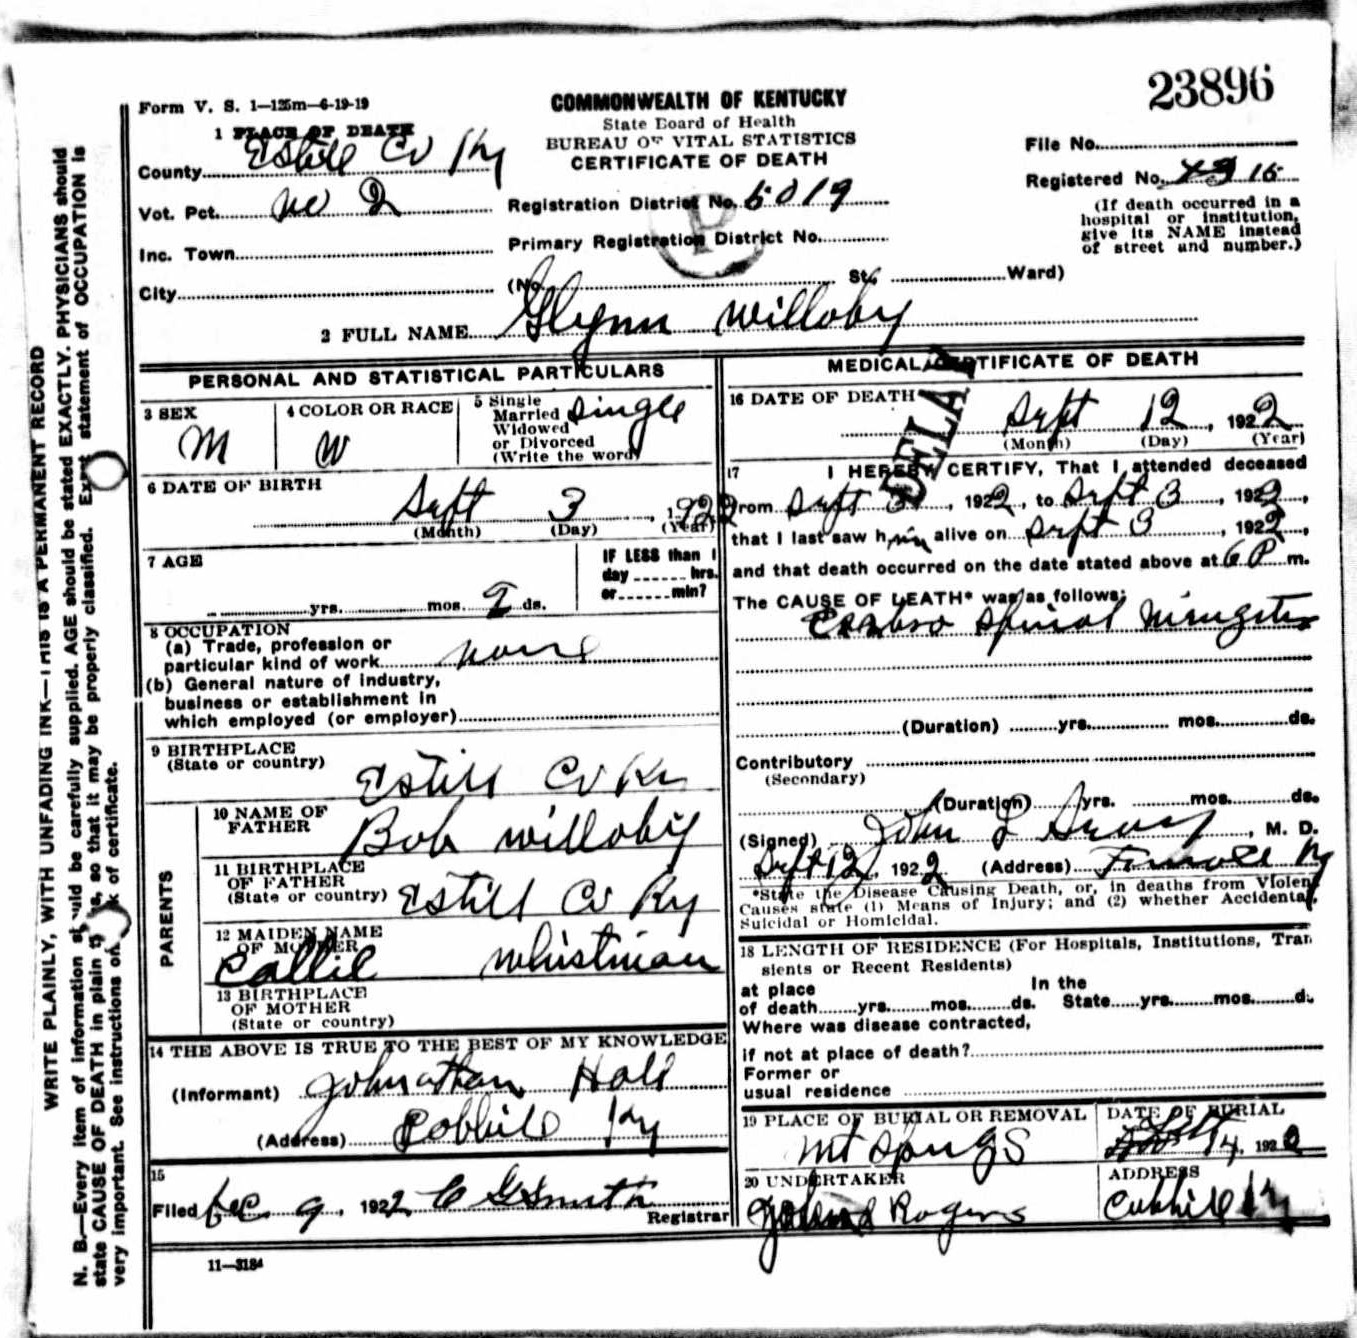 23896
Form V. S. 1—125m—6-19-19
COMMONWEALTH OF KENTUCKY
State Board of Health
BUREAU OF VITAL STATISTICS
CERTIFICATE OF DEATH
1 PLACE OF DEATH
County Estill Co Ky
Vot. Pct. no 2
Inc. Town
City
Registration District No. 5019
Primary Registration District No.
(No. St. Ward)
File No.
Registered No. 15
(If death occurred in a hospital or institution, give its NAME instead of street and number.)
P
2 FULL NAME Glynn Willoby
PERSONAL AND STATISTICAL PARTICULARS
3 SEX M
4 COLOR OR RACE W
5 Single Married Widowed or Divorced (Write the word) Single
6 DATE OF BIRTH
Sept 3, 1922
(Month) (Day) (Year)
7 AGE
yrs. mos. 9 ds.
IF LESS than 1 day hrs. or min?
8 OCCUPATION
(a) Trade, profession or
particular kind of work none
(b) General nature of industry,
business or establishment in
which employed (or employer)
9 BIRTHPLACE
(State or country) Estill Co Ky
PARENTS
10 NAME OF FATHER Bob Willoby
11 BIRTHPLACE OF FATHER
(State or country) Estill Co Ky
12 MAIDEN NAME OF MOTHER
Callie Whistman
13 BIRTHPLACE OF MOTHER
(State or country)
14 THE ABOVE IS TRUE TO THE BEST OF MY KNOWLEDGE
(Informant) Johnathan Hall
(Address) Cobhill Ky
15
Filed Dec 9, 1922 C G Smith
Registrar
11—3184
MEDICAL CERTIFICATE OF DEATH
DELA
16 DATE OF DEATH
Sept 12, 1922
(Month) (Day) (Year)
17 I HEREBY CERTIFY, That I attended deceased
from Sept 3, 1922, to Sept 3, 1922,
that I last saw him alive on Sept 3, 1922,
and that death occurred on the date stated above at 6 P m.
The CAUSE OF DEATH* was as follows:
Cerebro Spinal Mengites
(Duration) yrs. mos. ds.
Contributory
(Secondary)
(Duration) yrs. mos. ds.
(Signed) John L, M. D.
Sept 12, 1922 (Address) Ky
*State the Disease Causing Death, or, in deaths from Violent
Causes state (1) Means of Injury; and (2) whether Accidental,
Suicidal or Homicidal.
18 LENGTH OF RESIDENCE (For Hospitals, Institutions, Tran
sients or Recent Residents)
at place In the
of death yrs. mos. ds. State yrs. mos. d.
Where was disease contracted,
if not at place of death?
Former or
usual residence
19 PLACE OF BURIAL OR REMOVAL
Mt Spngs
DATE OF BURIAL
Sept 14, 1922
20 UNDERTAKER
Rogers
ADDRESS
Cobhill Ky
WRITE PLAINLY, WITH UNFADING INK—THIS IS A PERMANENT RECORD
N. B.—Every item of information should be carefully supplied. AGE should be stated EXACTLY. PHYSICIANS should
state CAUSE OF DEATH in plain terms, so that it may be properly classified. Exact statement of OCCUPATION is
very important. See instructions on back of certificate.